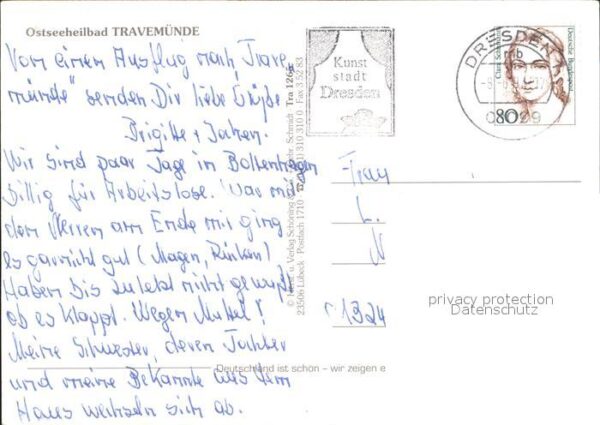 Ostseeheilbad TRAVEMÜNDE
Von einem Ausflug nach „Trave
münde" senden Dir liebe Grüße
Brigitte + Jochen.
Wir sind paar Tage in Boltenhagen
billig für Arbeitslose. War mit
den Nerven am Ende mir ging
es garnicht gut (Magen, Rücken)
Haben bis zuletzt nicht gewußt
ob es klappt. Wegen !
Meine Schwester, deren Tochter
und meine Bekannte aus dem
Haus wechseln sich ab.
Deutschland ist schön – wir zeigen e
Schöning & Schmidt Tra 1266
23506 Lübeck · Postfach 1710 310 310 0 · Fax 3 52 83
Kunst
stadt
Dresden
DRESDEN
mb
Clara Schumann
Deutsche Bundespost
80
Frau
L.
N
1324
privacy protection
Datenschutz